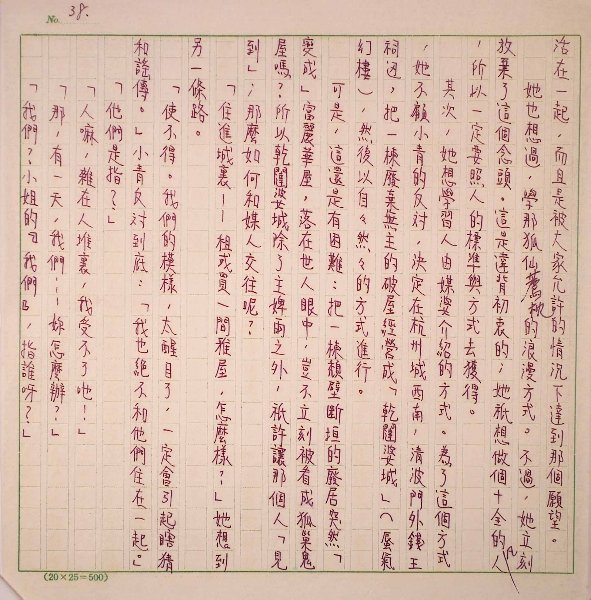 No. 38.
活在一起，而且是被大家允許的情況下達到那個願望。
她也想過，學那狐仙的浪漫方式。不過，她立刻
放棄了這個念頭。這是違背初衷的；她祇想做個十全的凡人
，所以一定要照人的標準與方式去獲得。
其次，她想學習人由媒婆介紹的方式。為了這個方式
，她不顧小青的反對，決定在杭州城西南，清波門外錢王
祠边，把一棟廢棄無主的破屋經營成「乾闥婆城」（蜃氣
幻樓），然後以自々然々的方式進行。
可是，這還是有困難：把一棟頹壁斷垣的廢居突然「
變成」富麗華屋，落在世人眼中，豈不立刻被看成狐巢鬼
屋嗎？所以乾闥婆城除了主婢兩之外，祇許讓那個人「見
到」；那麼如何和媒人交往呢？
「住進城裏——租或買一間雅屋，怎麼樣？」她想到
另一條路。
「使不得。我們的模樣，太醒目了，一定會引起瞎猜
和謠傳。」小青反對到底：「我也絕不和他們住在一起。」
「他們是指？」
「人嘛，雜在人堆裏，我受不了吔！」
「那，有一天，我們——妳怎麼辦？」
「我們？小姐的『我們』，指誰呀？」
(20×25=500)